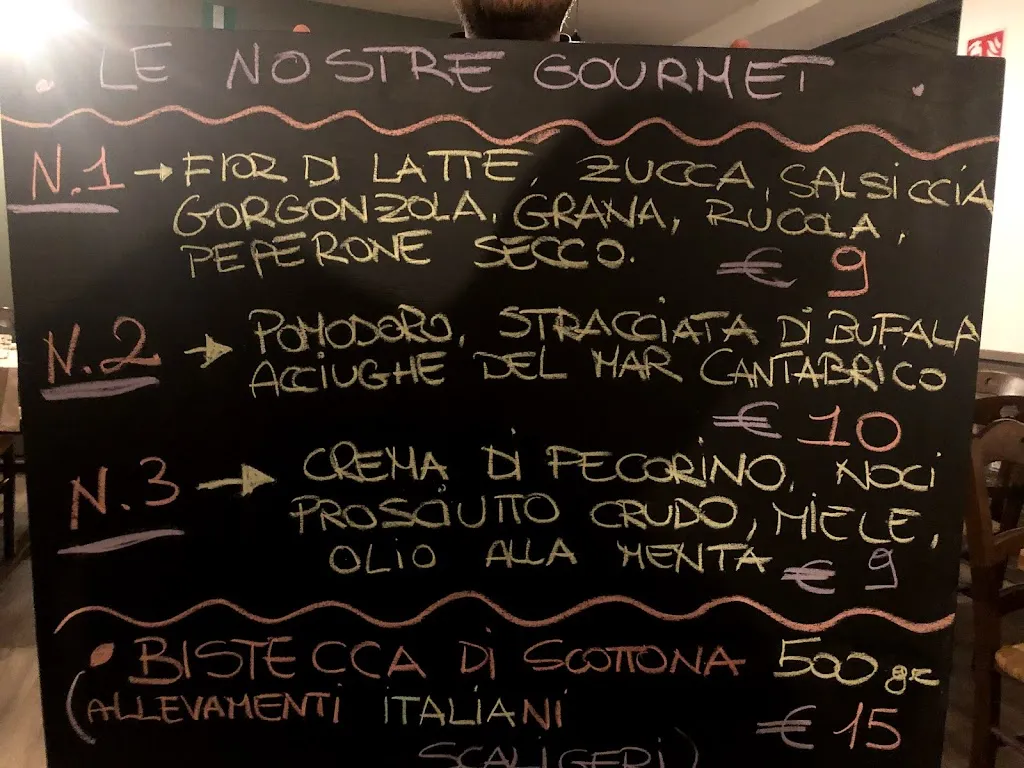 LE NOSTRE GOURMET
N.1 → FIOR DI LATTE, ZUCCA, SALSICCIA
GORGONZOLA, GRANA, RUCOLA,
PEPERONE SECCO. € 9
N.2 → POMODORO, STRACCIATA DI BUFALA
ACCIUGHE DEL MAR CANTABRICO
€ 10
N.3 → CREMA DI PECORINO, NOCI
PROSCIUTTO CRUDO, MIELE,
OLIO ALLA MENTA € 9
• BISTECCA DI SCOTTONA 500 gr
(ALLEVAMENTI ITALIANI € 15
SCALIGERI)